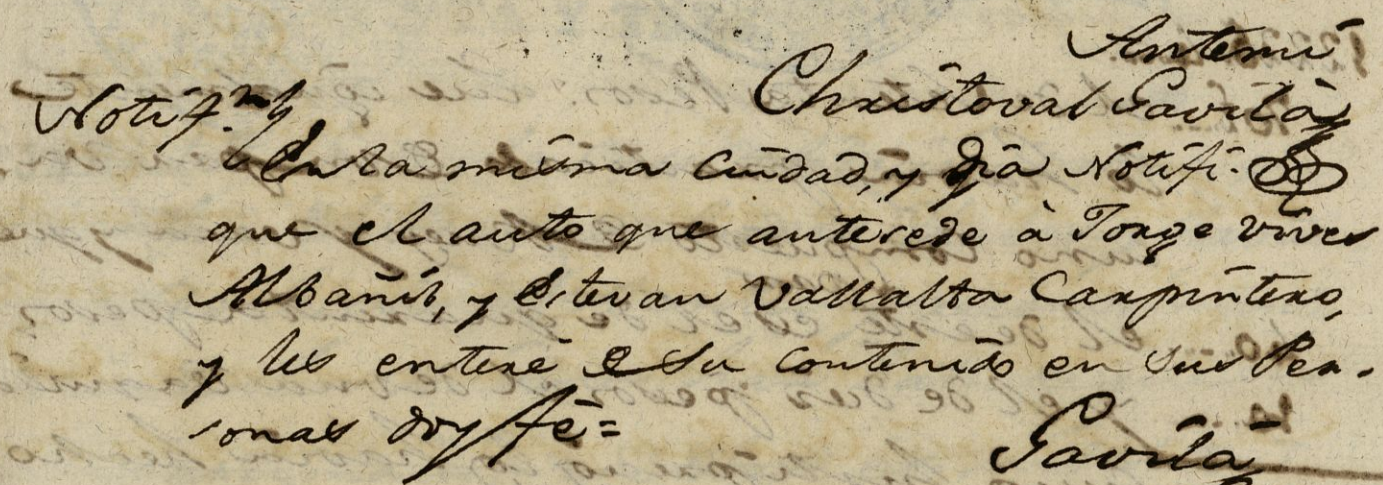 Antemi
Christoval Gavilá
Notif.on
En la misma Ciudad, y dia Notifi-
que el auto que antecede à Jorge Vives
Albañil, y Estevan Vallalta Carpintero,
y les enteré de su contenido en sus Per-
sonas doy fé=
Gavilá